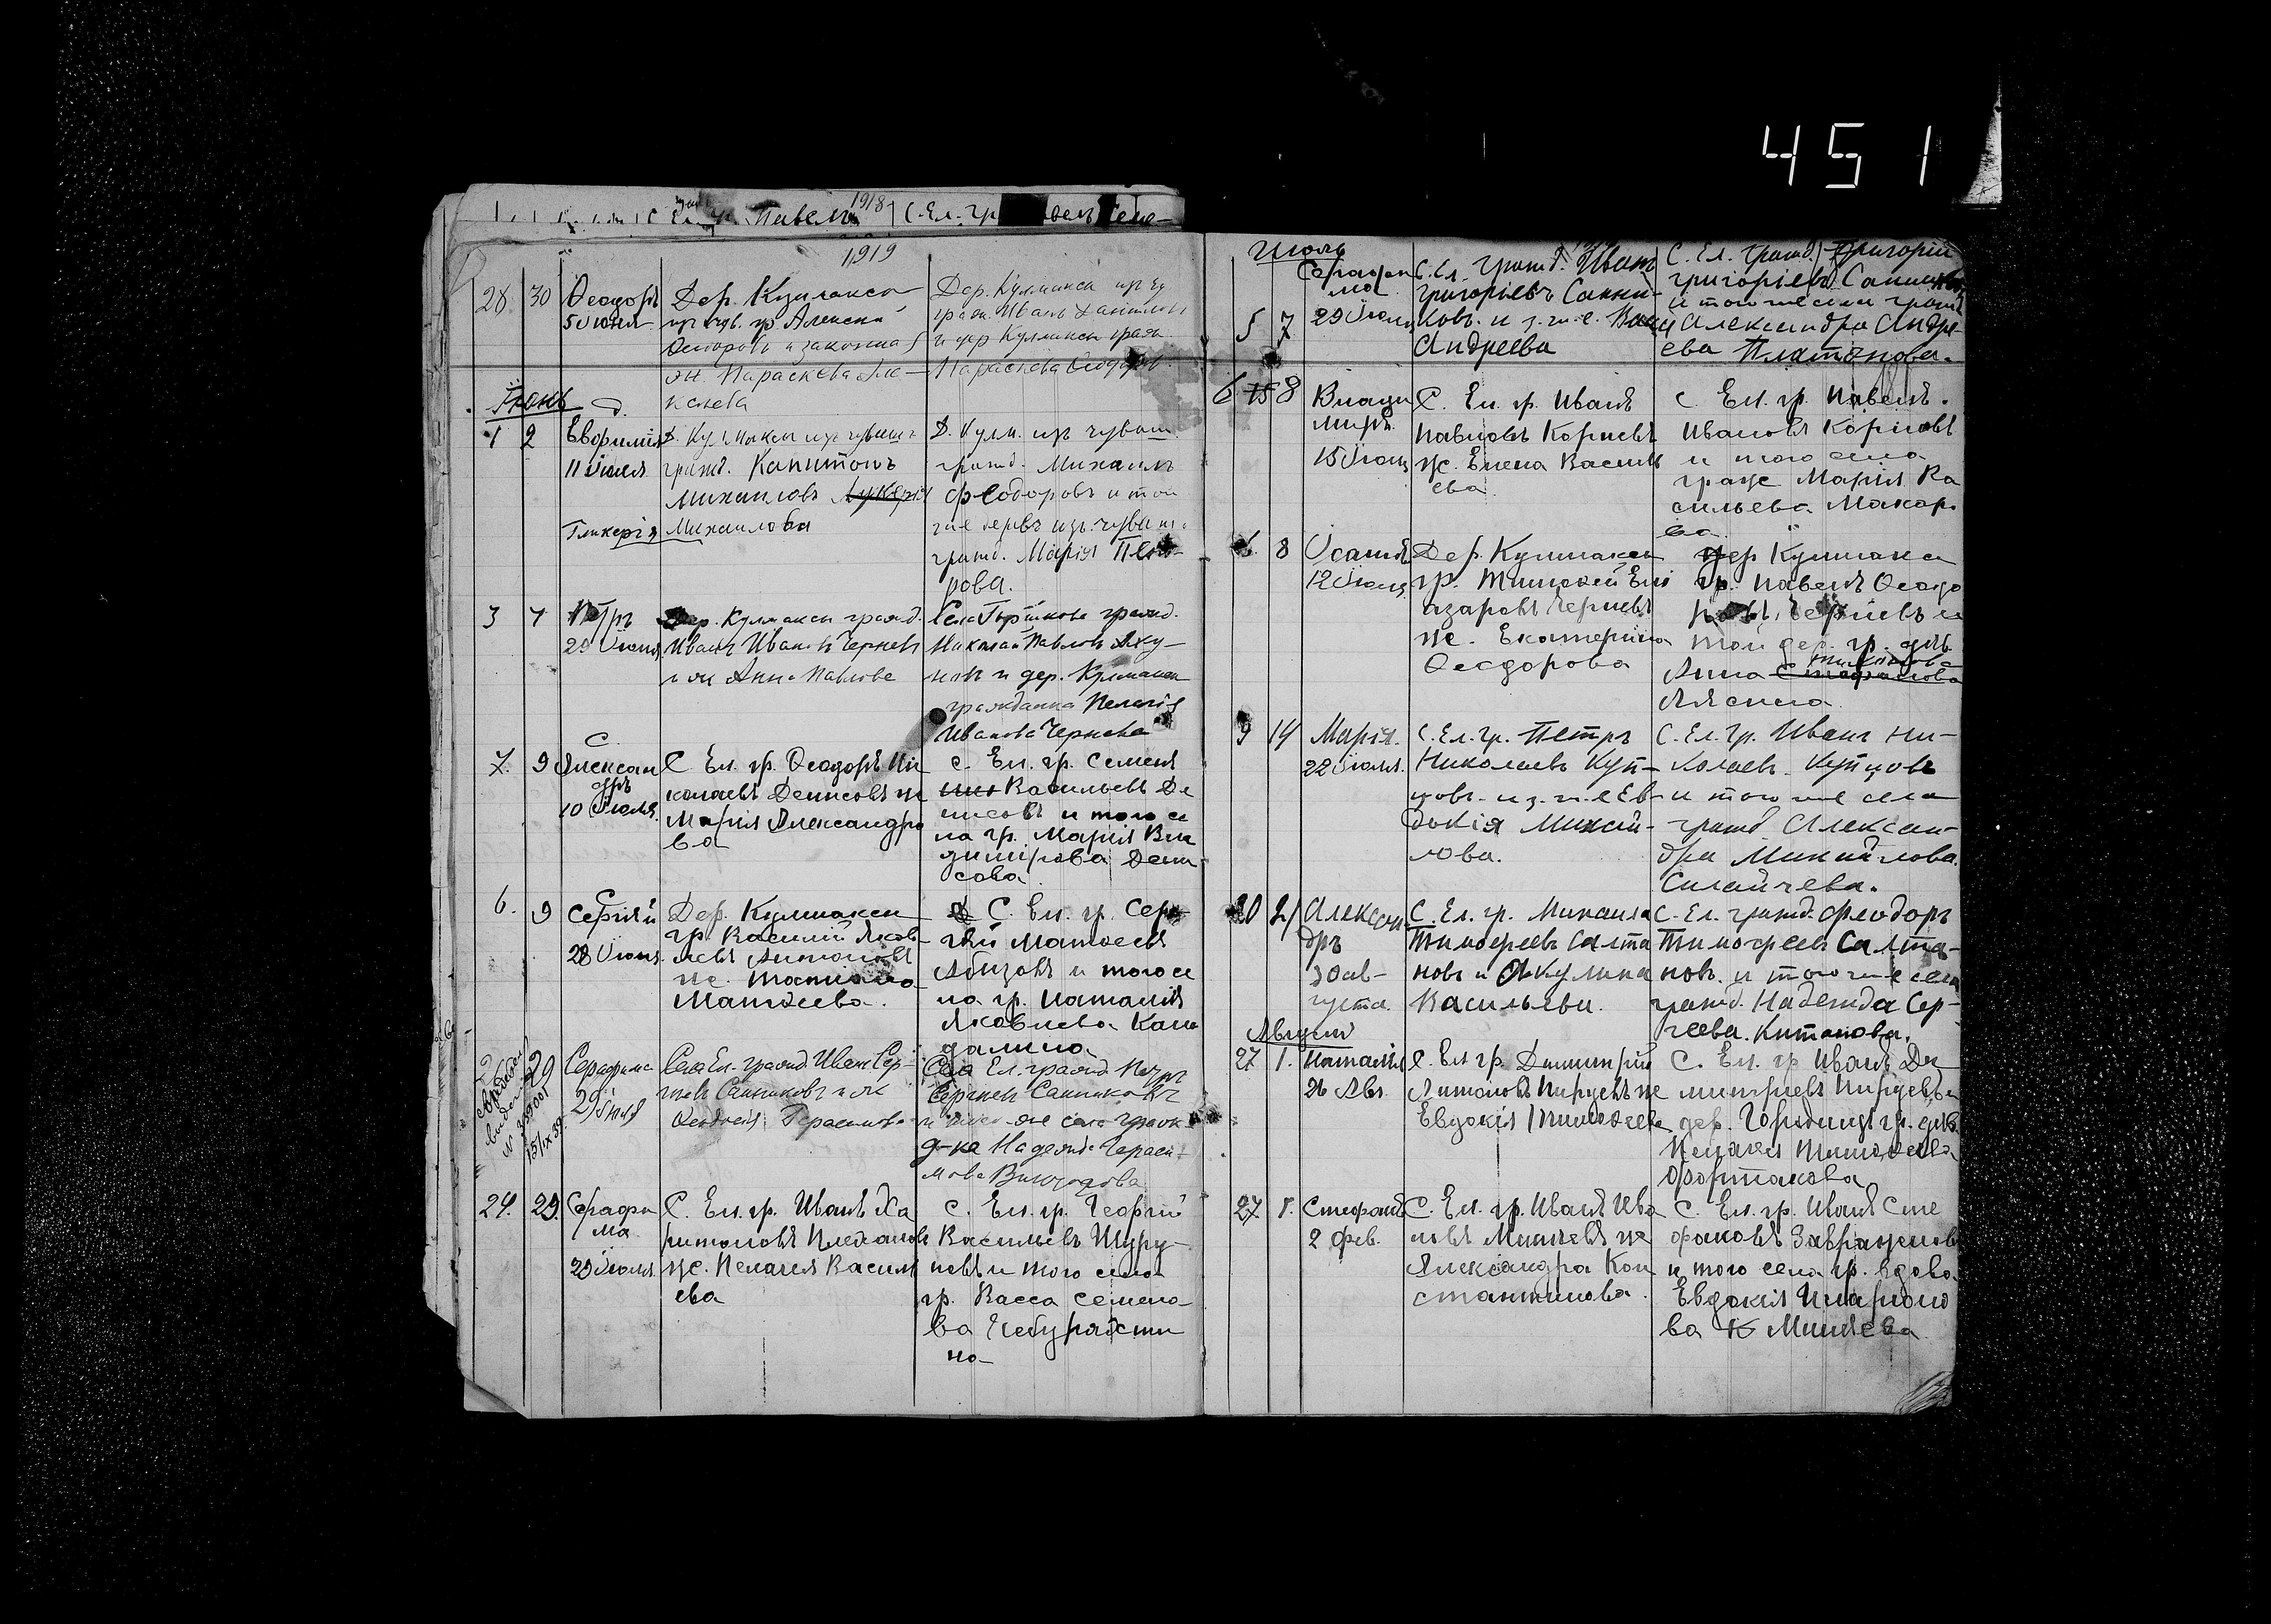 451
1918
Павелъ
С. Ел. гр.
1919
28 30 Ѳеодоръ
5 Июня
Дер. Кулмакса
гр. Алексій
Ѳеодоровъ и законная
ж. Параскева Але-
ксіева
Дер. Кулмакса
гражд. Иванъ
и дер Кулмакси гражд
Параскева Ѳеодоров.
Іюнь
1 2 Евфимія
11 Июля
Гликерія
Д. Кулмакси изъ чуваш
гражд. Капитонъ
Михаиловъ
Михаилова
Д. Кулм. изъ чуваш
гражд. Михаилъ
Феодоровъ и той
же дервъ изъ чуваш.
гражд. Марія Пет-
рова.
3 7 Петръ
29 Июня
Дер. Кулмакси гражд.
Иванъ Ивановъ Черневъ
и ж Анна Павлова
Села гражд.
Николай Павловъ Яку-
новъ и дер. Кулмакси
гражданка Пелагія
Ивановa Чернева
7. 9 Александръ
10 Июля
С. Ел. гр. Ѳеодоръ Ни
колаевъ Денисовъ ж
Марія Александро
ва
с. Ел. гр. Семенъ
Васильевъ Де
нисовъ и того се
ла гр. Марія Вла
димірова Дени
сова
6. 9 Сергій
28 Июня
Дер. Кулмакси
гр. Василій Яков-
левъ Антоновъ
ж. Татіана
Матѳеева.
С. Ел. гр. Сер-
гѣй Матѳеевъ
Абызовъ и того се
ла гр. Наталія
Яковлева Кан
далина
выдано
15/IX 39
29 Серафима
29 Июля
Села Ел. гражд Иванъ Сер-
геевъ Санниковъ и ж
Герасимова
Села Ел. гражд Петръ
Сергеевъ Санниковъ
и того-же села граж-
д-ка Надежда Гераси-
мова
24. 29. Серафи
ма
29 Июля
С. Ел. гр. Иванъ Ха
ритоновъ Плехановъ
ж. Пелагея Василь
ева
С. Ел. гр. Георгій
Васильевъ Шуру-
повъ и того села
гр. Васса Семено-
ва Чебуряєти
на
Июль
5 7 Серафи
ма
29 Июля
С. Ел. Гражд. Иванъ
Григорьевъ Санни-
ковъ. и з. ж. е.
Андреева
С. Ел. Гражд. Григорій
Григорьевъ Санников
и того же села гражд
Александра Андре-
ева Платонова.
6 8 Влади
миръ
15 Июля
С. Ел. гр. Иванъ
Павловъ Корневъ
ж. Елена Василь
ева
с Ел. гр. Павелъ
Ивановъ Корневъ
и того села
граж Марія Ва
сильева Макаро
ва
6. 8
12 Июля
Дер. Кулмакси
гр. Тимоѳей Ели
азаровъ Черневъ
ж. Екатерина
Ѳеодорова
дер Кулмакса
гр. Павелъ Ѳеодо
ровъ, Черневъ и
той дер. гр. дѣв.
Анна
9 14 Марія.
22 Июля.
С. Ел. Гр. Петръ
Николаевъ Куп-
цовъ. и з. ж. е Ев-
докія Михай-
лова.
С. Ел. Гр. Иванъ Ни-
колаевъ Купцовъ
и того же села
гражд. Алексан-
дра Михайлова
Силайчева.
20 21 Алексан
дръ
30 ав-
густа.
С. Ел. гр. Михаилъ
Тимофеевъ Салта
новъ и Акулина
Васильева.
С. Ел. гражд. Феодоръ
Тимофеевъ Салта-
новъ. и того же села
гражд. Надежда Сер-
геева. Китанова.
Августъ
27 1. Наталія
26 Авг.
С. Ел гр. Димитрій
Антоновъ Пирцевъ ж
Евдокія Тимоѳеева
С. Ел. гр Иванъ Ди
митриевъ Пирцевъ и
дер. Городищъ гр. дѣв.
Пелагея Тимоѳеева
Фортакова
27 1. Стефанъ
2 Фев.
С. Ел. гр. Иванъ Ива
новъ Миняевъ ж
Александра Кон
стантинова.
С. Ел. гр. Иванъ Сте
фановъ Завраженовъ
и того села гр. вдова
Евдокія Иларіоно
ва Миняева